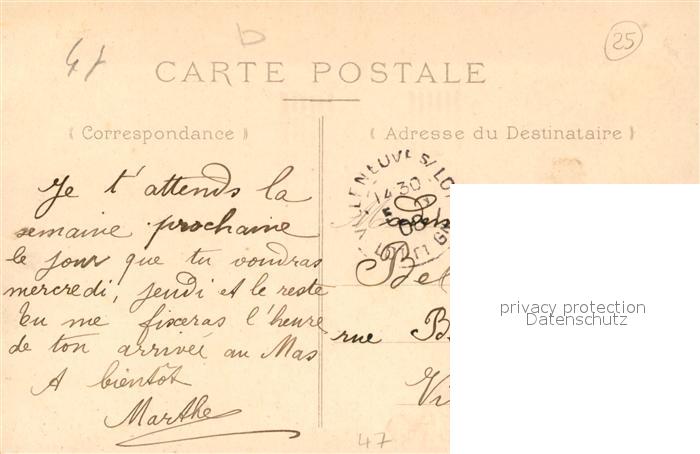 b
25
47
CARTE POSTALE
(Correspondance)
(Adresse du Destinataire)
Je t'attends la
semaine prochaine
le jour que tu voudras
mercredi, jeudi et le reste
tu me fixeras l'heure
de ton arrivée au Mas
A bientôt
Marthe
VILLENEUVE S/LOT
14 30
08
Bel
rue B
Vi
47
privacy protection
Datenschutz